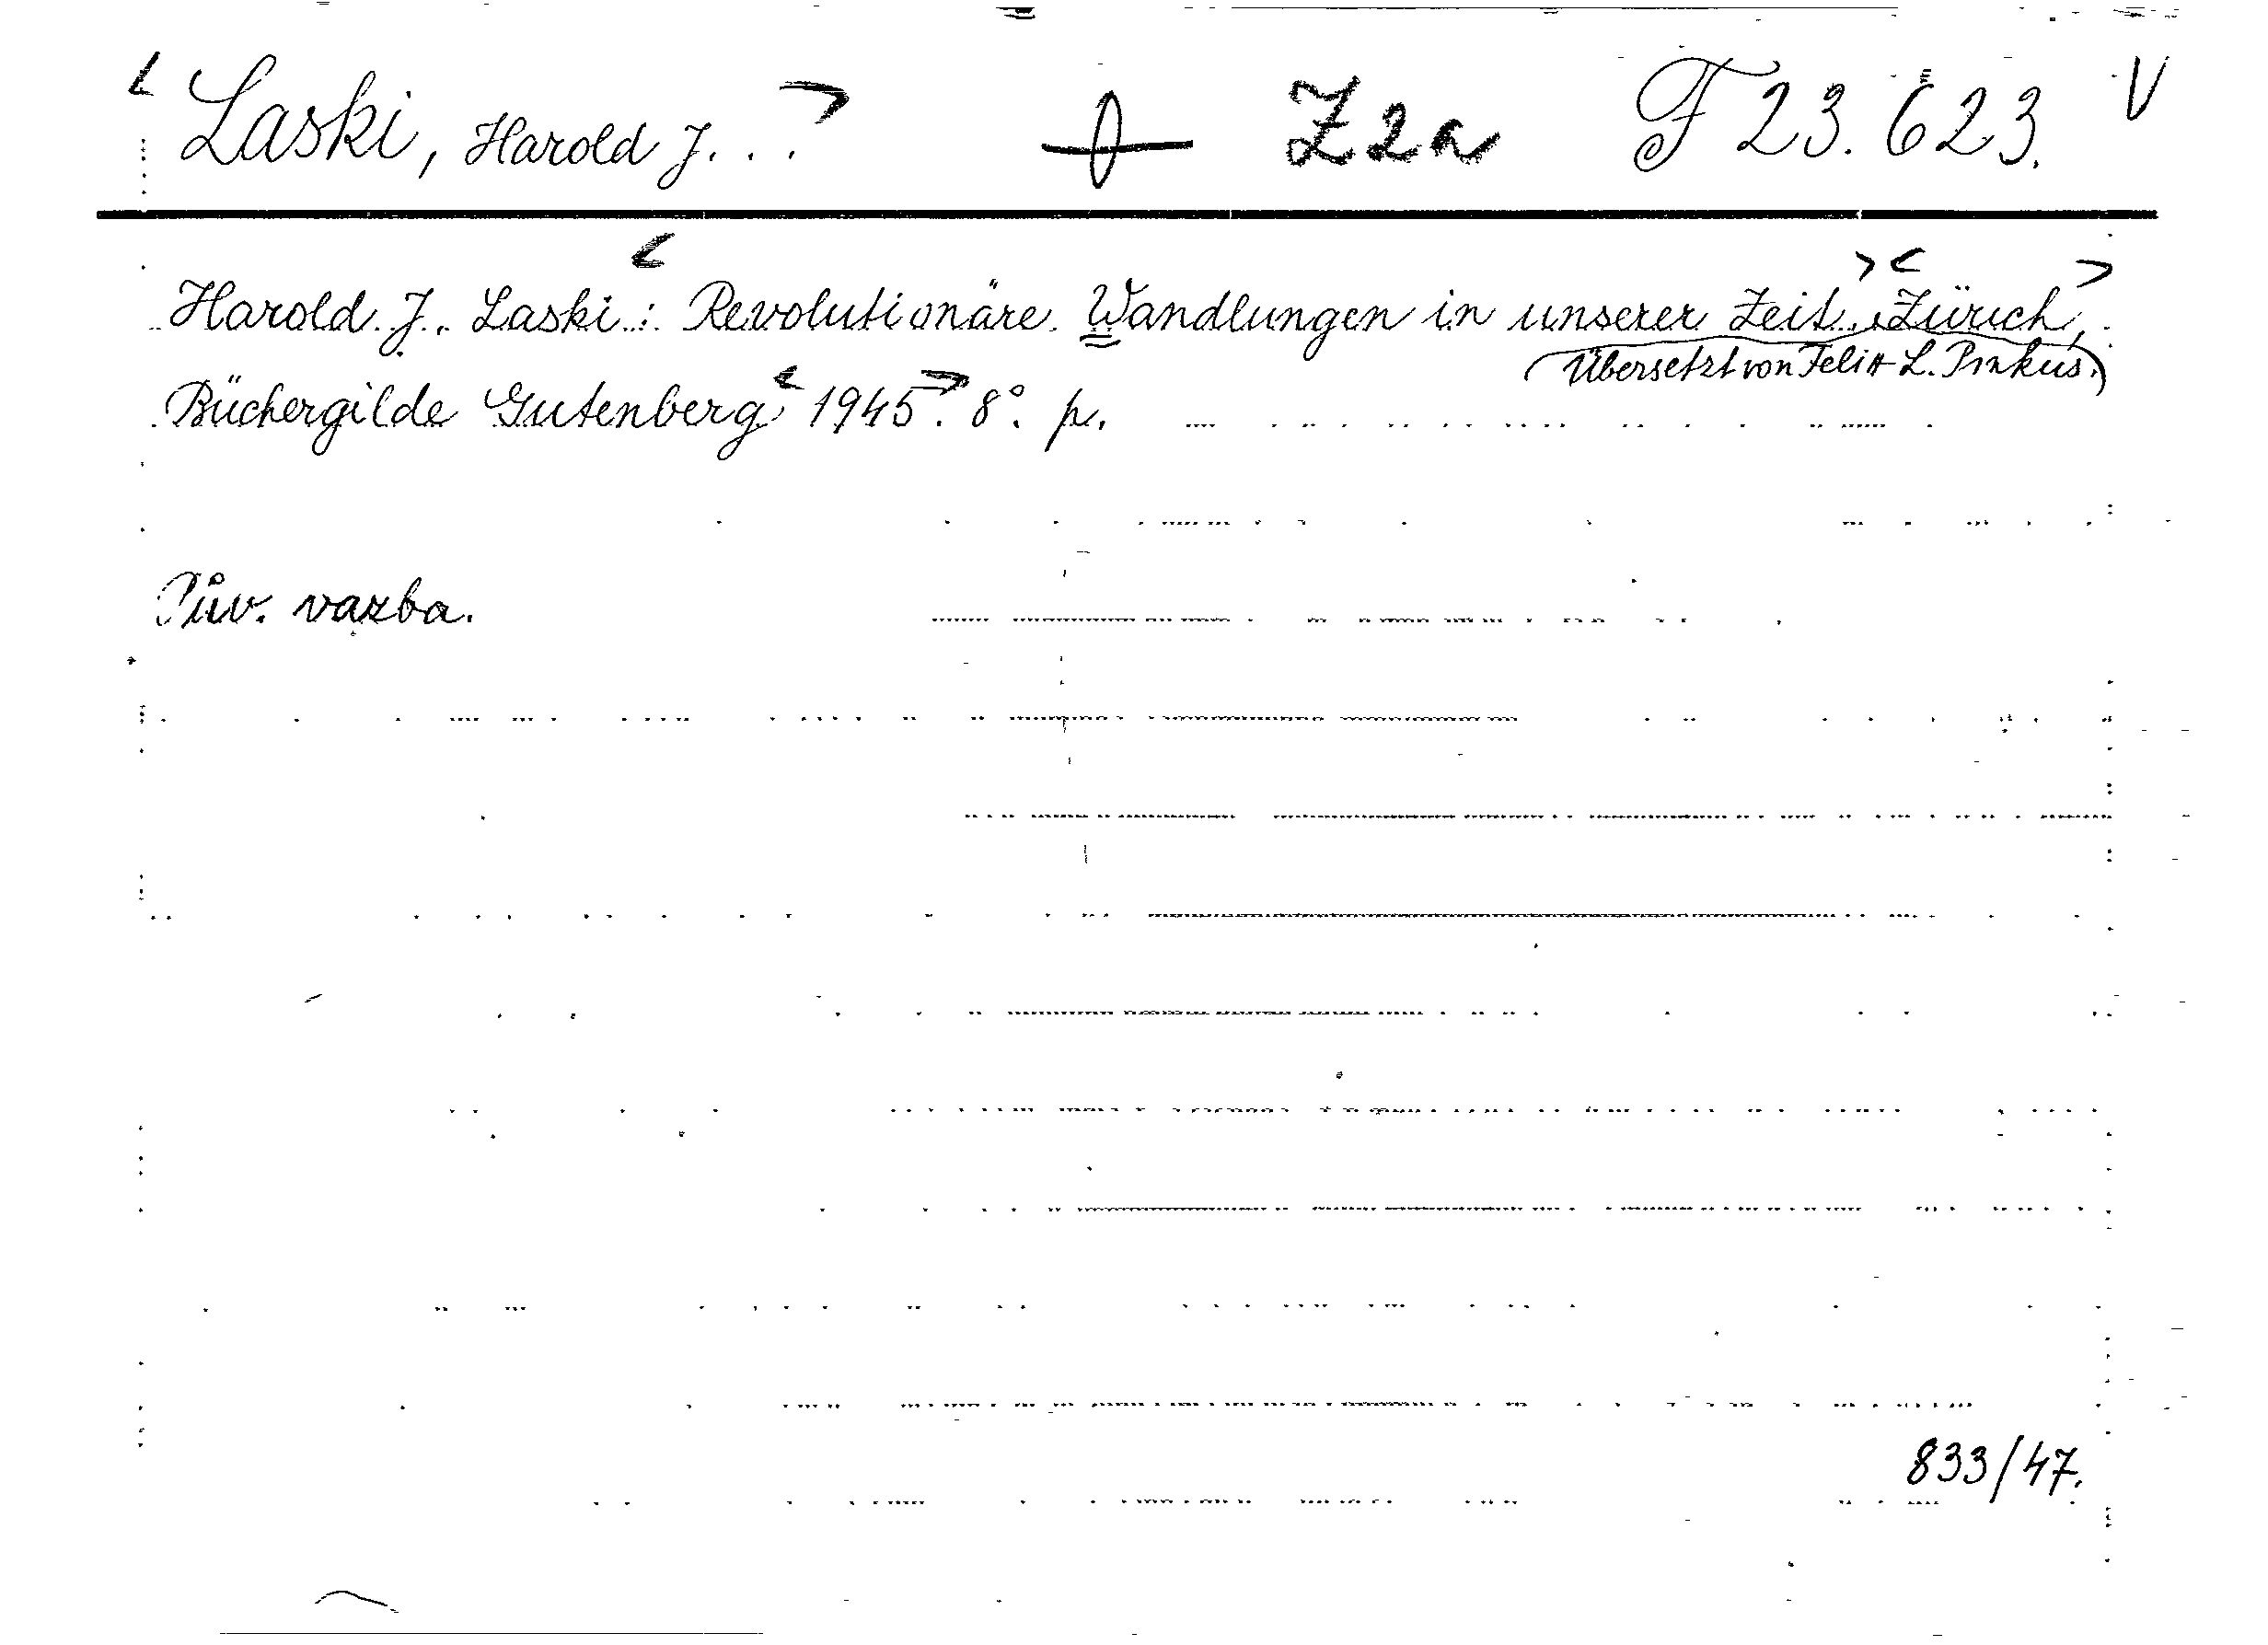 < Laski, Harold J... > Z2a F 23.623. V
Harold J. Laski: < Revolutionäre Wandlungen in unserer Zeit. > < Zürich, >
(Übersetzt von Felix L. Pinkus.)
Büchergilde Gutenberg < 1945 >. 8°. p.
Pův. vazba.
833/47.